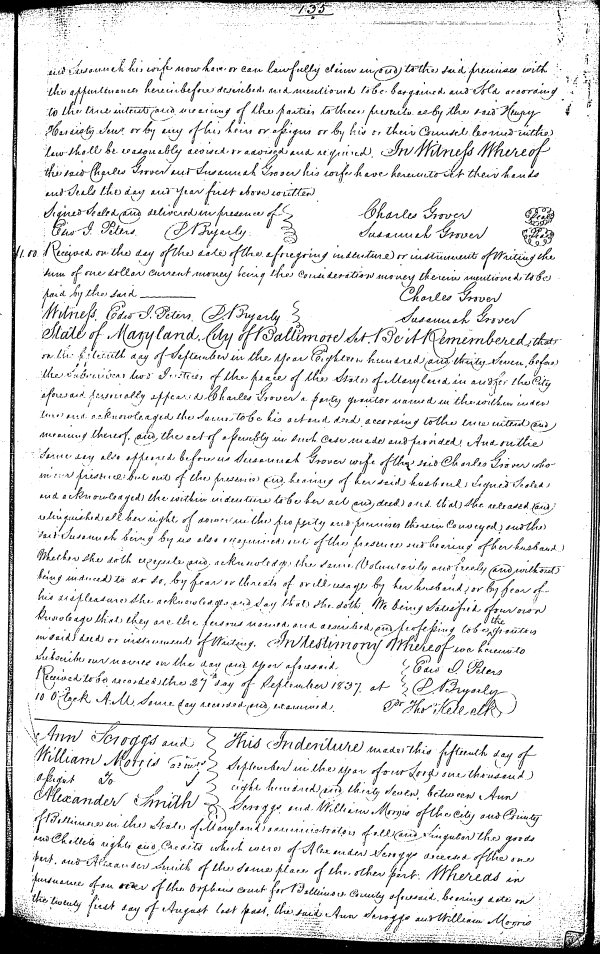 135
and Susannah his wife now have or can lawfully claim in and to the said premises with
the appurtenances hereinbefore described and mentioned to be bargained and sold according
to the true intent and meaning of the parties to these presents as by the said Henry
or by any of his heirs or assigns or by his or their Counsel learned in the
law shall be reasonably advised or devised and required. In Witness Whereof
the said Charles Grover and Susannah Grover his wife have hereunto set their hands
and Seals the day and year first above written
Signed Sealed and delivered in presence of Charles Grover Seal
Edw I. Peters D Bryarly Susannah Grover Seal
$1.00 Received on the day of the date of the aforegoing indenture or instrument of Writing the
sum of one dollar current money being the consideration money therein mentioned to be
paid by the said ———— Charles Grover
Witness, Edw I. Peters, D Bryarly Susannah Grover
State of Maryland, City of Baltimore Sct. Be it Remembered, that
on the fifteenth day of September in the year Eighteen hundred and thirty Seven, before
the Subscribers two Justices of the peace of the State of Maryland in and for the City
aforesaid personally appeared Charles Grover a party grantor named in the within inden
ture and acknowledged the same to be his act and deed according to the true intent and
meaning thereof, and the act of assembly in such case made and provided. And on the
same day also appeared before us Susannah Grover wife of the said Charles Grover who
in our presence but out of the presence and hearing of her said husband, Signed Sealed
and acknowledged the within indenture to be her act and deed and that she released and
relinquished all her right of dower in the property and premises therein Conveyed, and the
said Susannah being by us also examined out of the presence and hearing of her husband
Whether she doth execute and acknowledge the same Voluntarily and freely and without
being induced to do so, by fear or threats of or ill usage by her husband, or by fear of
his displeasure she acknowledges and say that she doth. We being Satisfied of our own
knowledge that they are the persons named and described as and professing to be the grantors
in said deed or instrument of Writing. In testimony Whereof we hereunto
Subscribe our names on the day and year aforesaid. Edw I Peters
Received to be recorded the 27th day of September 1837, at D Bryarly
10 O'Clock A.M. Same day recorded and examined. Pr Thos Kell clk
Ann Scroggs and This Indenture made this fifteenth day of
William Morris admrs September in the year of our Lord one thousand
of To eight hundred and thirty Seven, between Ann
Alexander Smith Scroggs and William Morris of the City and County
of Baltimore in the State of Maryland administrators of all and Singular the goods
and Chattels rights and Credits which were of Alexander Scroggs deceased of the one
part, and Alexander Smith of the same place of the other part. Whereas in
pursuance of an order of the Orphans court for Baltimore County aforesaid, bearing date on
the twenty first day of August last past, the said Ann Scroggs and William Morris